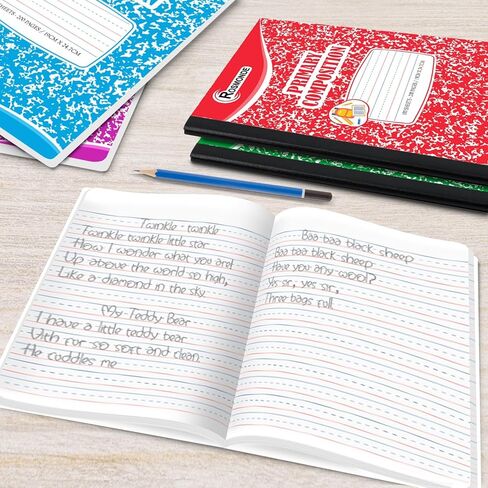 SHEETS, 200 PAGES / 19CM X 24.7CM
ROSMONDE
PRIMARY
COMPOSITION
100 SHEETS, 200 PAGES / 19CM X 24.7CM
Twinkle - twinkle
Twinkle twinkle little star
How I wonder what you are!
Up above the world so high,
Like a diamond in the sky
My Teddy Bear
I have a little teddy bear
With fur so sort and clean,
He cuddles me
Baa-baa black sheep
Baa baa black sheep
Have you any wool?
Yis sir, yis sir,
Three bags full